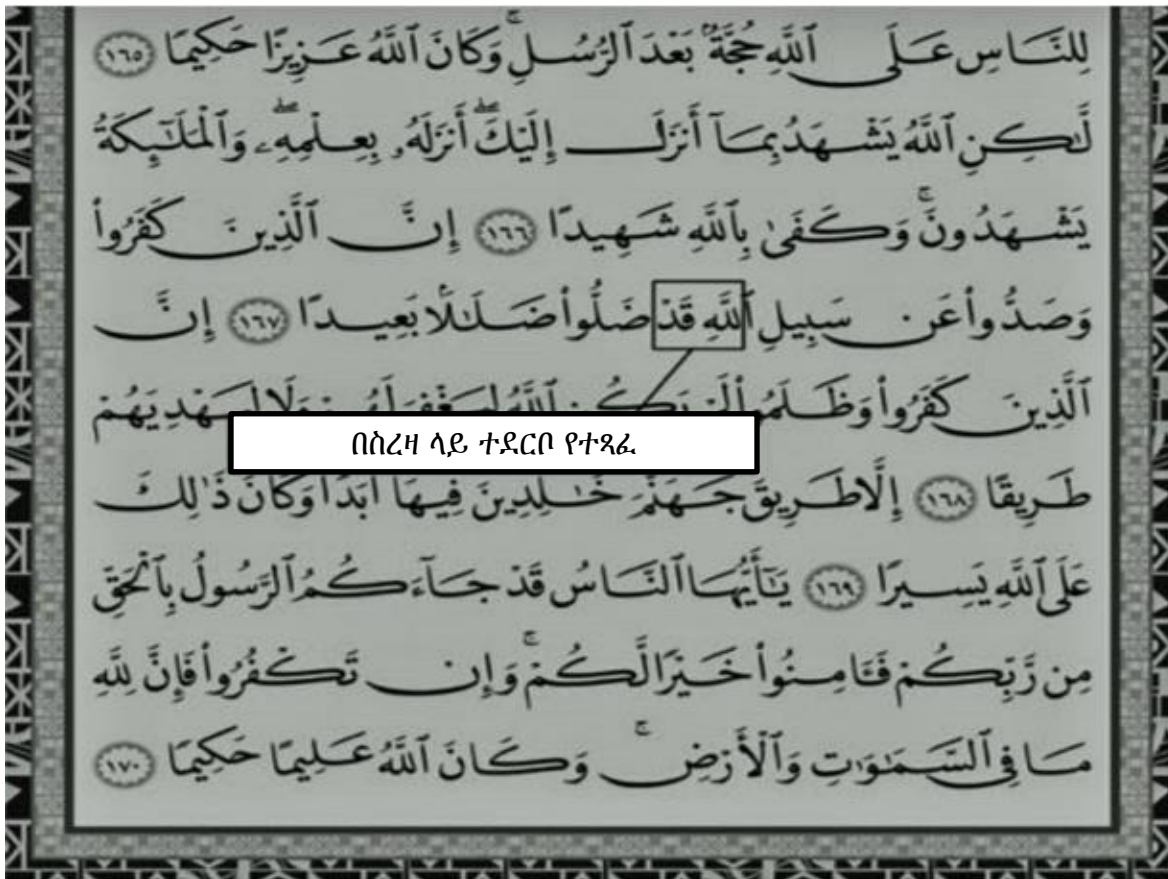 لِلنَّاسِ عَلَى ٱللَّهِ حُجَّةٌۢ بَعْدَ ٱلرُّسُلِ ۚ وَكَانَ ٱللَّهُ عَزِيزًا حَكِيمًا ١٦٥
لَّٰكِنِ ٱللَّهُ يَشْهَدُ بِمَآ أَنزَلَ إِلَيْكَ ۖ أَنزَلَهُۥ بِعِلْمِهِۦ ۖ وَٱلْمَلَٰٓئِكَةُ
يَشْهَدُونَ ۚ وَكَفَىٰ بِٱللَّهِ شَهِيدًا ١٦٦ إِنَّ ٱلَّذِينَ كَفَرُوا۟
وَصَدُّوا۟ عَن سَبِيلِ ٱللَّهِ قَدْ ضَلُّوا۟ ضَلَٰلًۢا بَعِيدًا ١٦٧ إِنَّ
ٱلَّذِينَ كَفَرُوا۟ وَظَلَمُوا۟ لَمْ يَكُنِ ٱللَّهُ لِيَغْفِرَ لَهُمْ وَلَا لِيَهْدِيَهُمْ
በስረዛ ላይ ተደርቦ የተጻፈ
طَرِيقًا ١٦٨ إِلَّا طَرِيقَ جَهَنَّمَ خَٰلِدِينَ فِيهَآ أَبَدًا ۚ وَكَانَ ذَٰلِكَ
عَلَى ٱللَّهِ يَسِيرًا ١٦٩ يَٰٓأَيُّهَا ٱلنَّاسُ قَدْ جَآءَكُمُ ٱلرَّسُولُ بِٱلْحَقِّ
مِن رَّبِّكُمْ فَـَٔامِنُوا۟ خَيْرًا لَّكُمْ ۚ وَإِن تَكْفُرُوا۟ فَإِنَّ لِلَّهِ
مَا فِى ٱلسَّمَٰوَٰتِ وَٱلْأَرْضِ ۚ وَكَانَ ٱللَّهُ عَلِيمًا حَكِيمًا ١٧٠